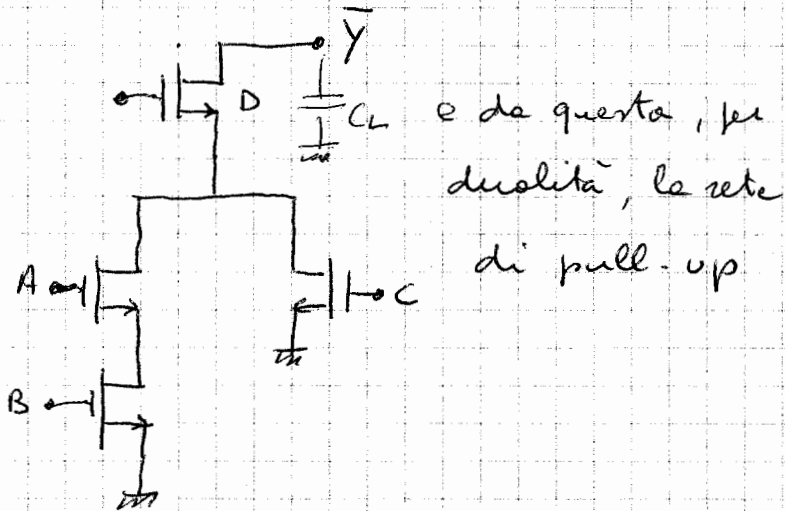 Y̅
D
CL
e da questa, per
dualità, la rete
di pull-up
A
C
B